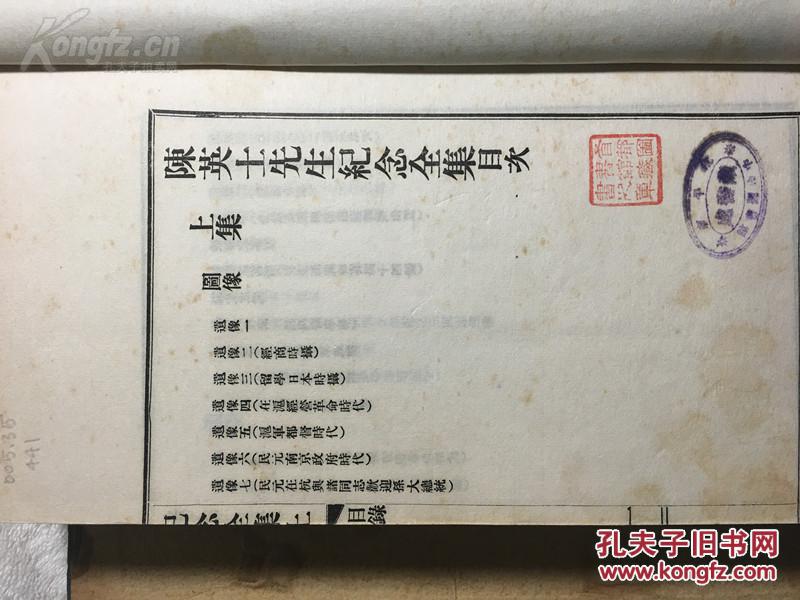 陳英士先生紀念全集目次
上集
圖像
遺像一
遺像二(經商時攝)
遺像三(留學日本時攝)
遺像四(在滬經營革命時代)
遺像五(滬軍都督時代)
遺像六(民元南京政府時代)
遺像七(民元在杭與諸同志歡迎孫大總統)
目錄
一
005.35
441
Kongfz.cn
孔夫子拍卖网
孔夫子旧书网
www.kongfz.com